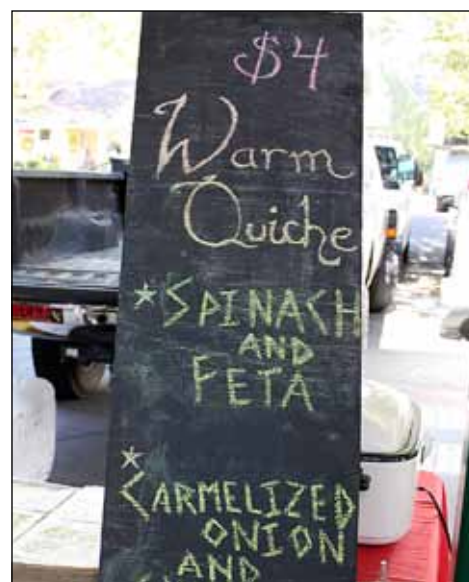 $4
Warm
Quiche
*SPINACH
AND
FETA
*
CARMELIZED
ONION
AND